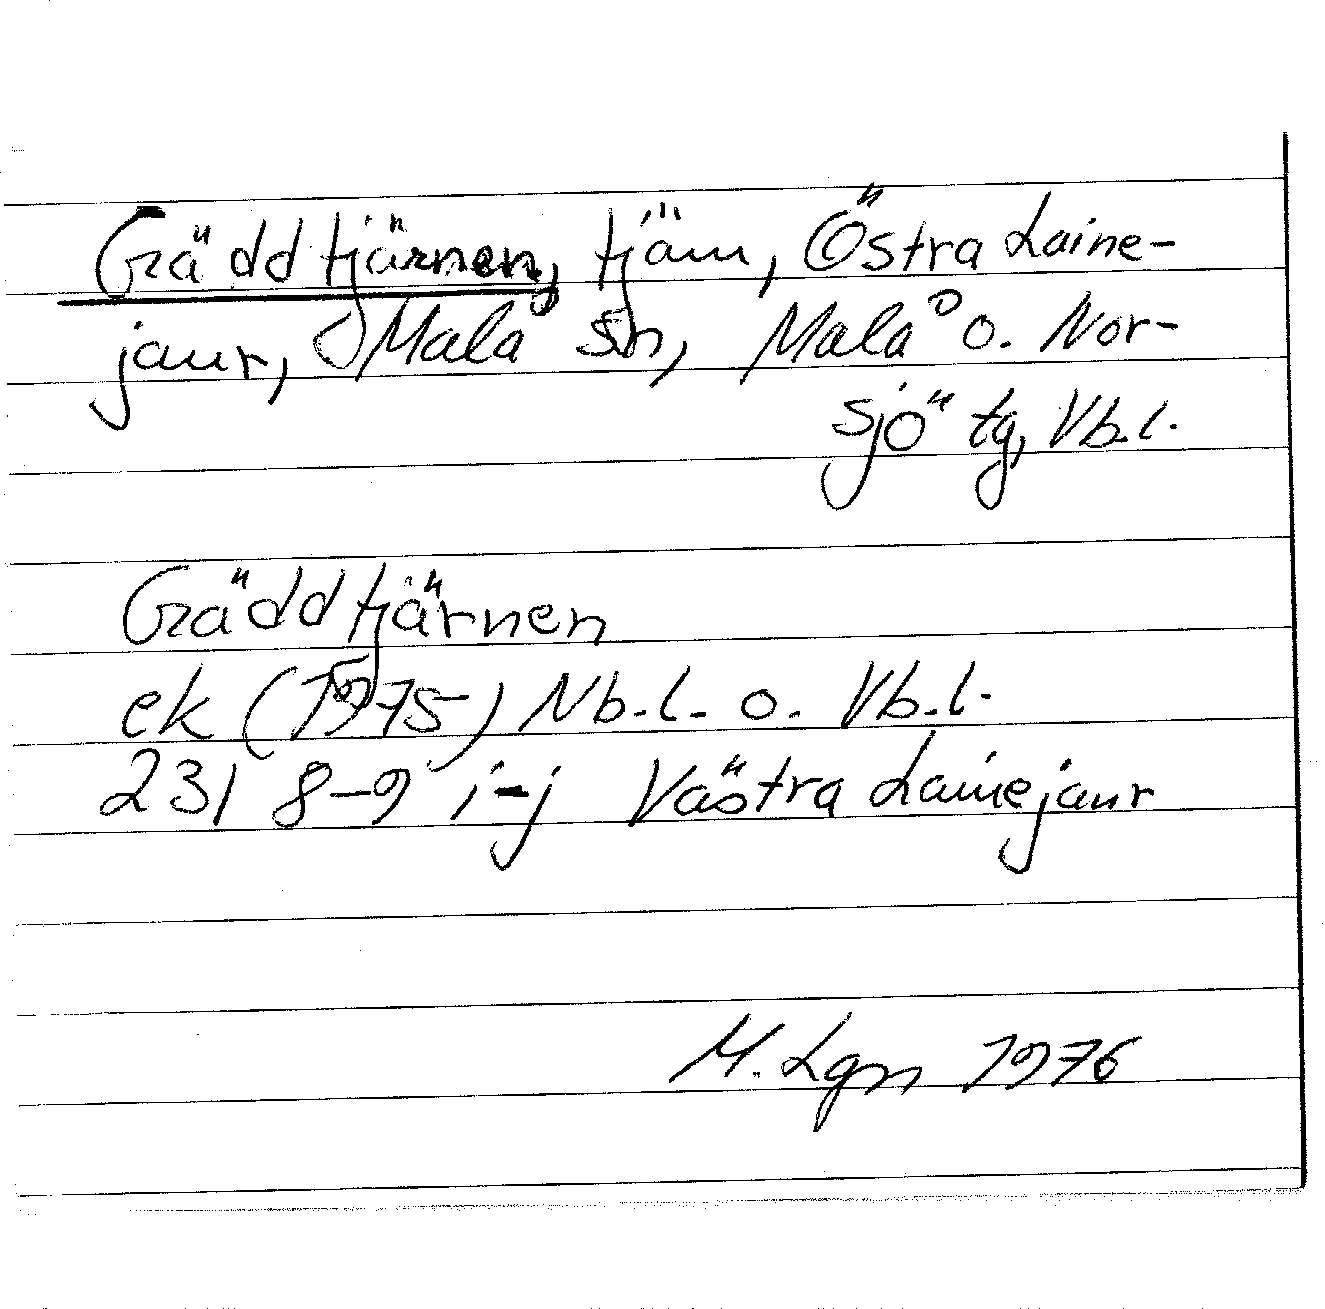 Gräddtjärnen, tjärn, Östra Laine-
jaur, Malå sn, Malå o. Nor-
sjö tg, Vb.l.
Gräddtjärnen
ek (1975) Nb.l. o. Vb.l.
231 8-9 i-j Västra Lainejaur
M. Lgn 1976